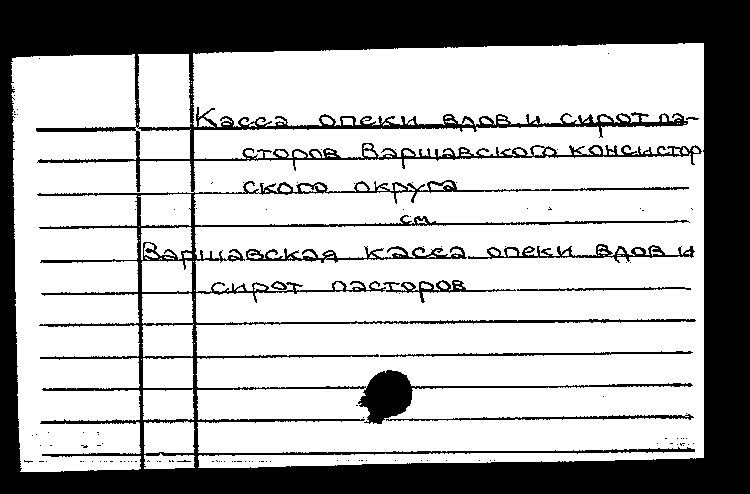 Касса опеки вдов и сирот па-
сторов Варшавского консистор
ского округа
см.
Варшавская касса опеки вдов и
сирот пасторов